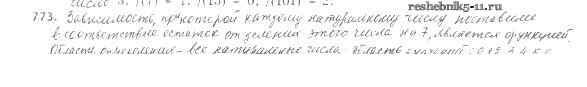 reshebnik5-11.ru
773. Зависимость, при которой каждому натуральному числу поставлен
в соответствие остаток от деления этого числа на 7, является функцией.
Область определения - все натуральные числа. область значений: 0